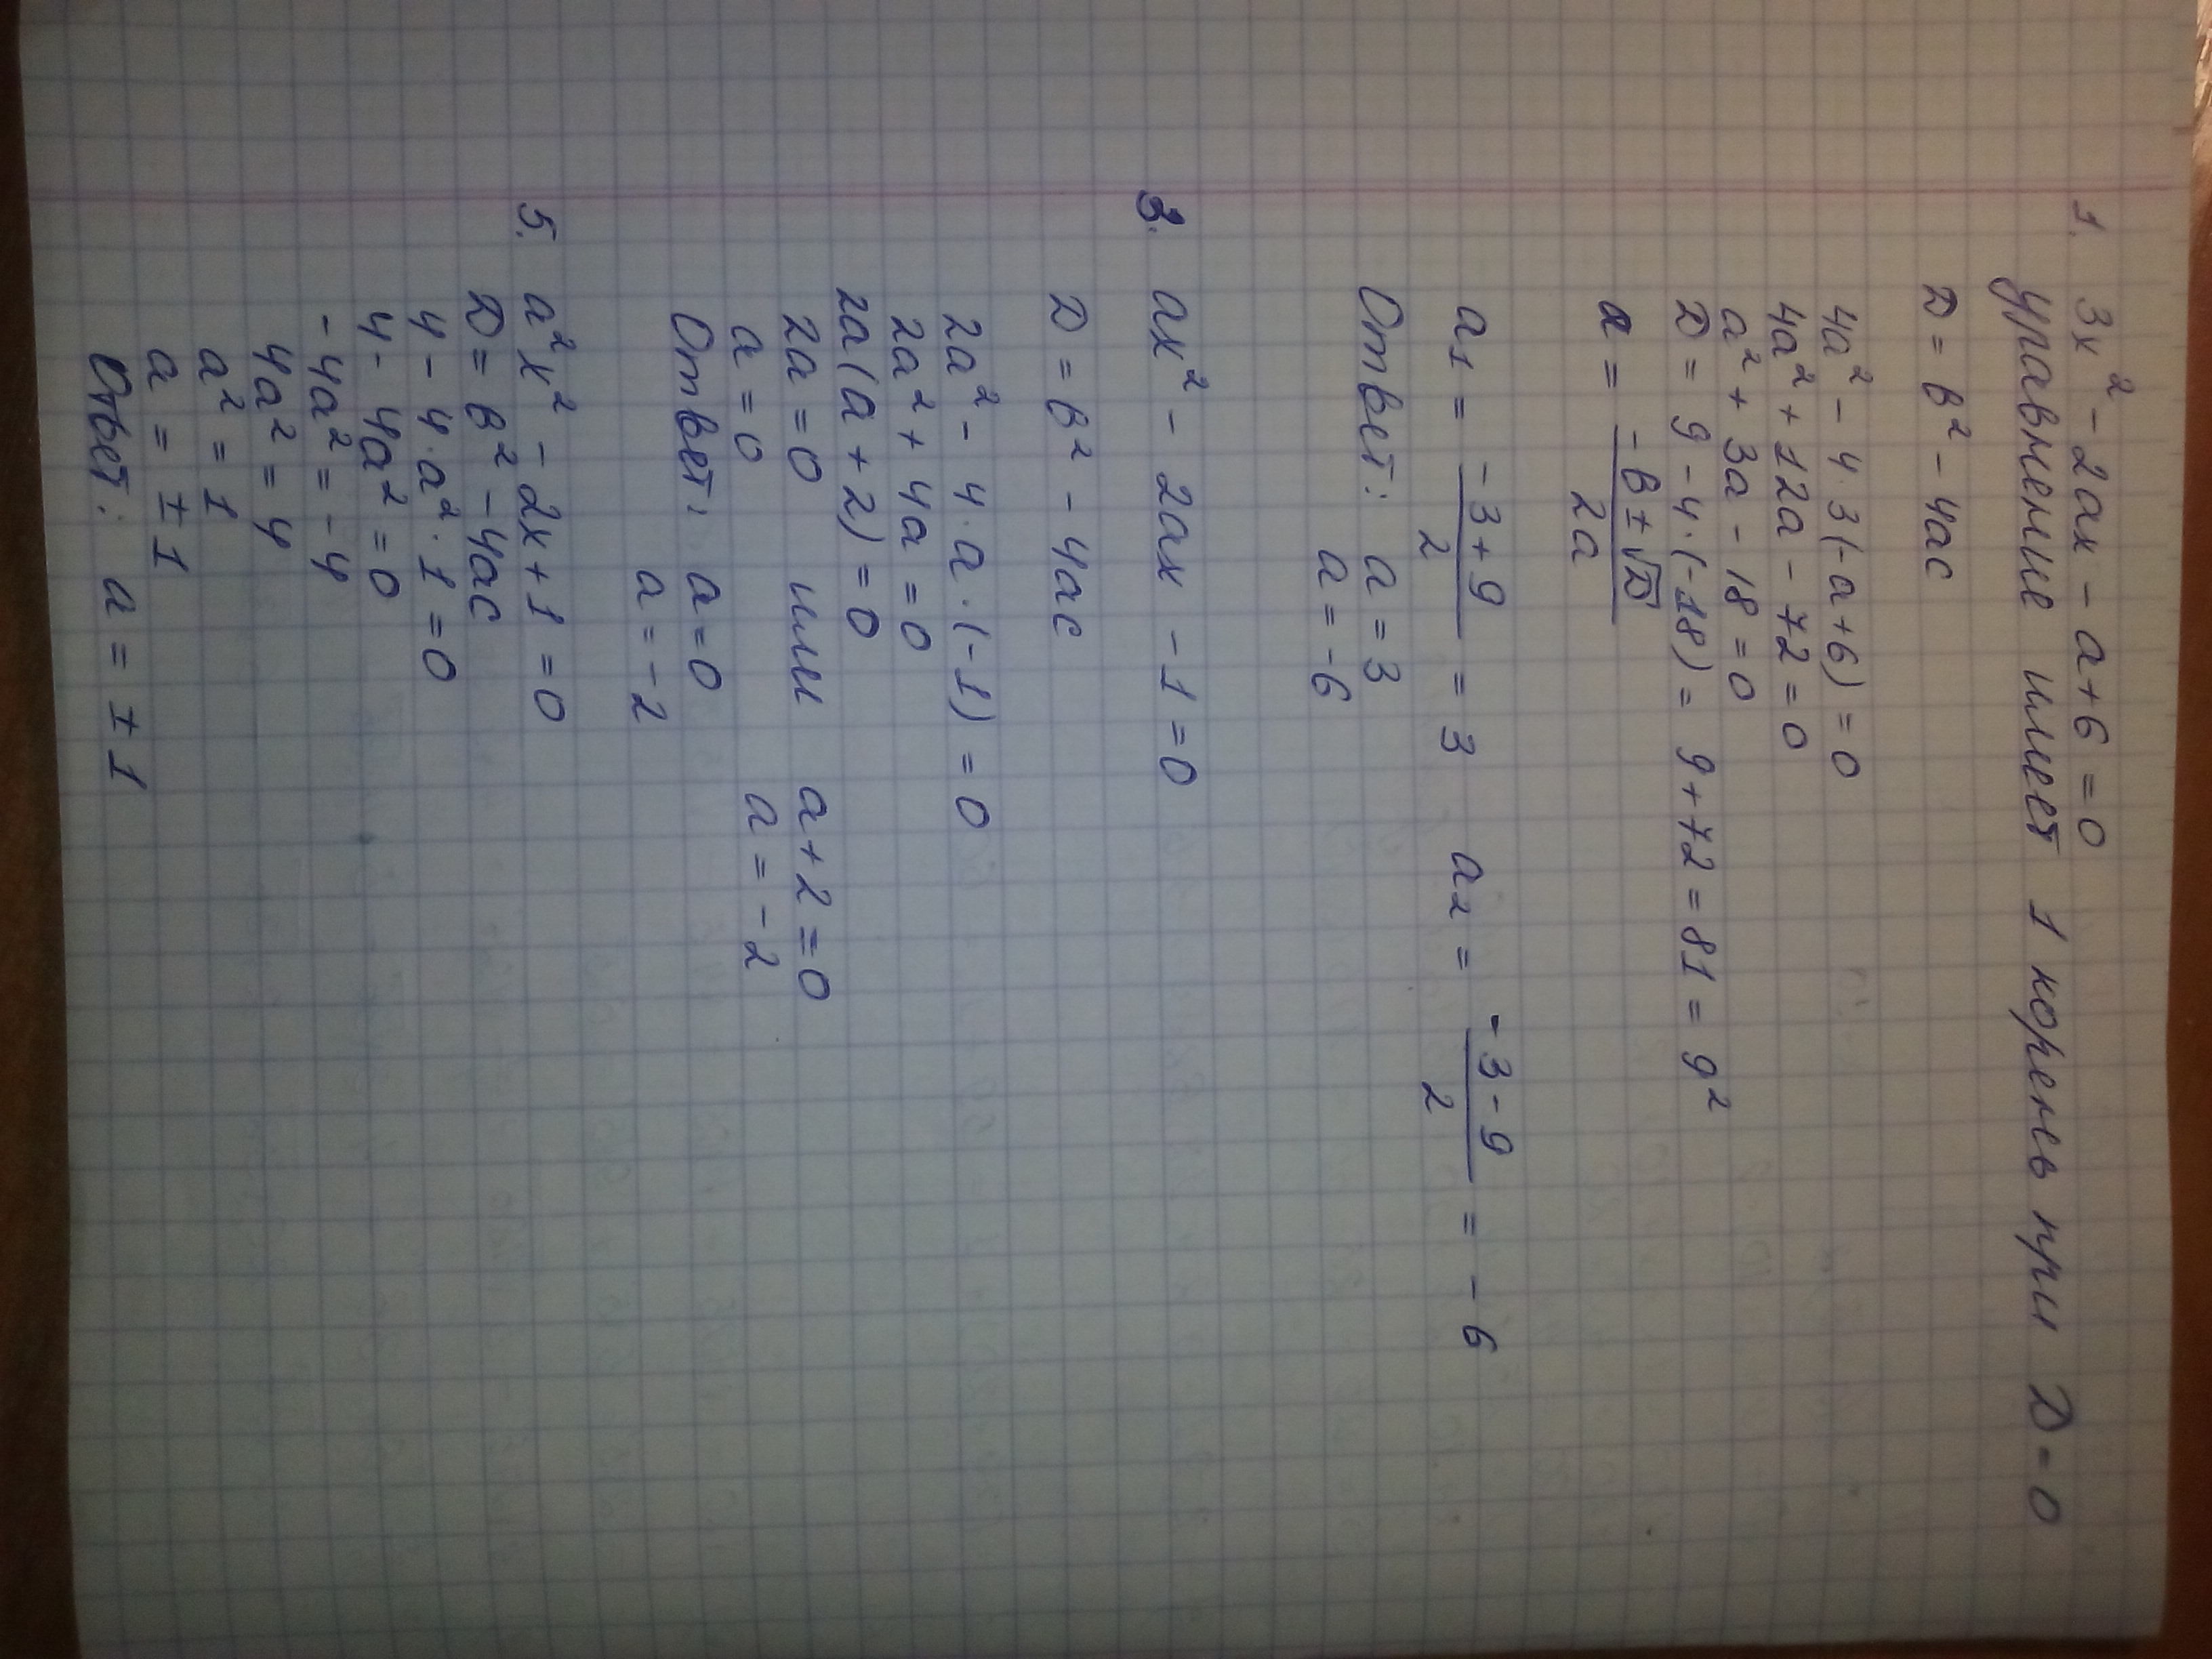 1. 3x² - 2ax - a + 6 = 0
уравнение имеет 1 корень при D = 0
D = в² - 4ac
4a² - 4 · 3(-a+6) = 0
4a² + 12a - 72 = 0
a² + 3a - 18 = 0
D = 9 - 4·(-18) = 9+72 = 81 = 9²
a = (-в ± √D)/2a
a₁ = (-3+9)/2 = 3 a₂ = (-3-9)/2 = -6
Ответ: a = 3
a = -6
3. ax² - 2ax - 1 = 0
D = в² - 4ac
2a² - 4·a·(-1) = 0
2a² + 4a = 0
2a(a + 2) = 0
2a = 0 или a + 2 = 0
a = 0 a = -2
Ответ: a = 0
a = -2
5. a²x² - 2x + 1 = 0
D = в² - 4ac
4 - 4·a²·1 = 0
4 - 4a² = 0
-4a² = -4
4a² = 4
a² = 1
a = ± 1
Ответ: a = ± 1